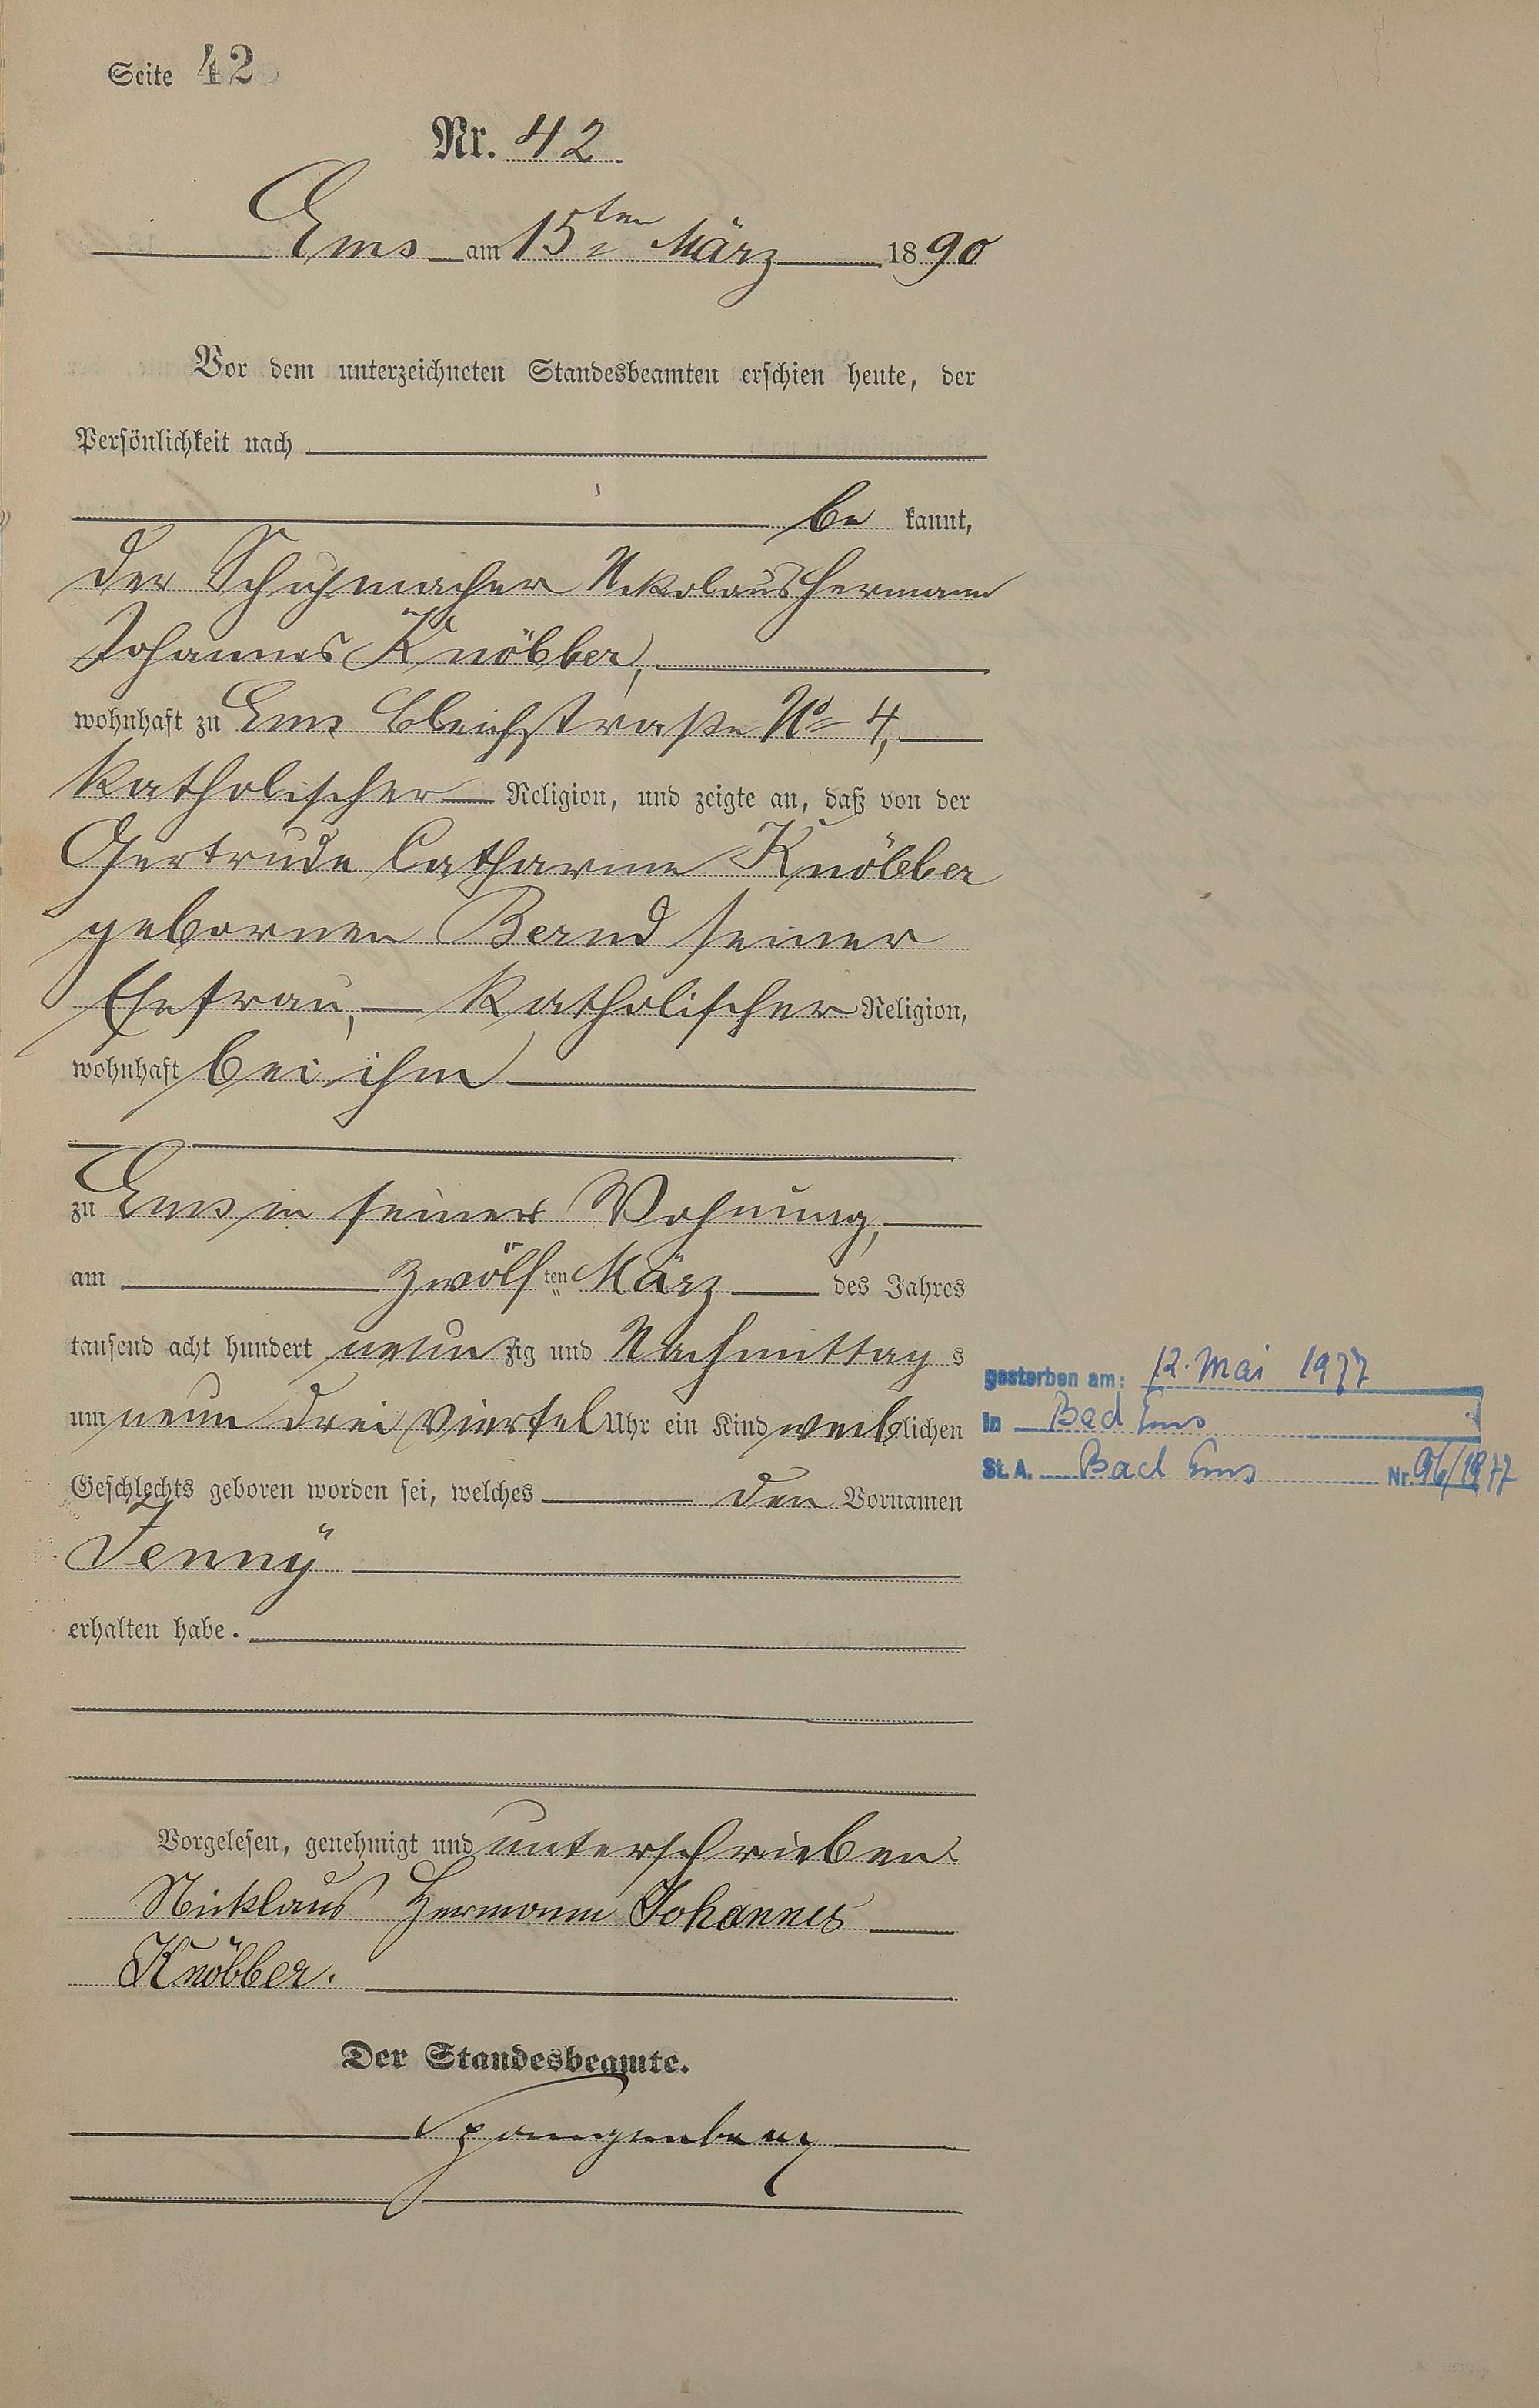 Seite 42
Nr. 42
Ems am 15ten März 1890
Vor dem unterzeichneten Standesbeamten erschien heute, der
Persönlichkeit nach
be kannt,
der Schuhmacher Nikolaus Hermann
Johannes Knöbber,
wohnhaft zu Ems Bleichstraße No 4,
katholischer Religion, und zeigte an, daß von der
Gertrude Catharine Knöbber
gebornen Bernd seiner
Ehefrau, katholischer Religion,
wohnhaft bei ihm
zu Ems in seiner Wohnung,
am zwölften März des Jahres
tausend acht hundert neunzig und Nachmittags
um neun drei viertel Uhr ein Kind weiblichen
Geschlechts geboren worden sei, welches den Vornamen
Jenny
erhalten habe.
gestorben am: 12. Mai 1977
in Bad Ems
St. A. Bad Ems Nr. 96/1977
Vorgelesen, genehmigt und unterschrieben
Nicklaus Hermann Johannes
Knöbber.
Der Standesbeamte.
Spangenberg